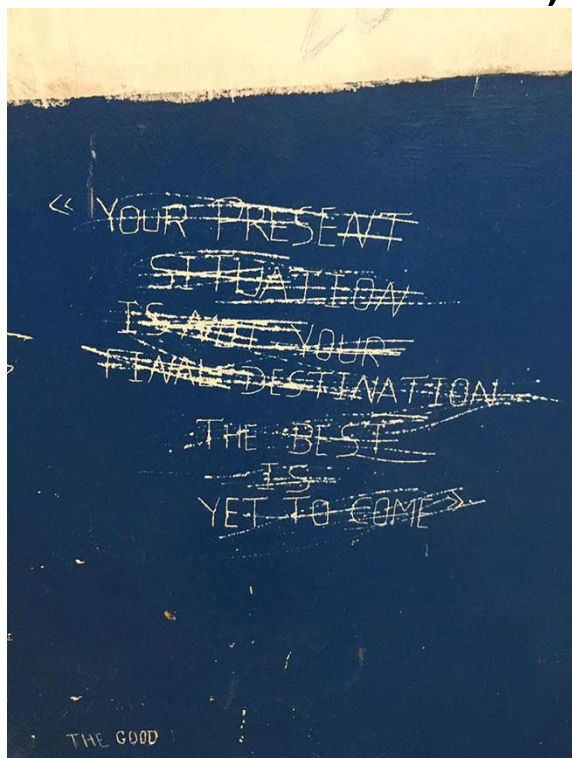 « YOUR PRESENT
SITUATION
IS NOT YOUR
FINAL DESTINATION
THE BEST
IS
YET TO COME »
THE GOOD